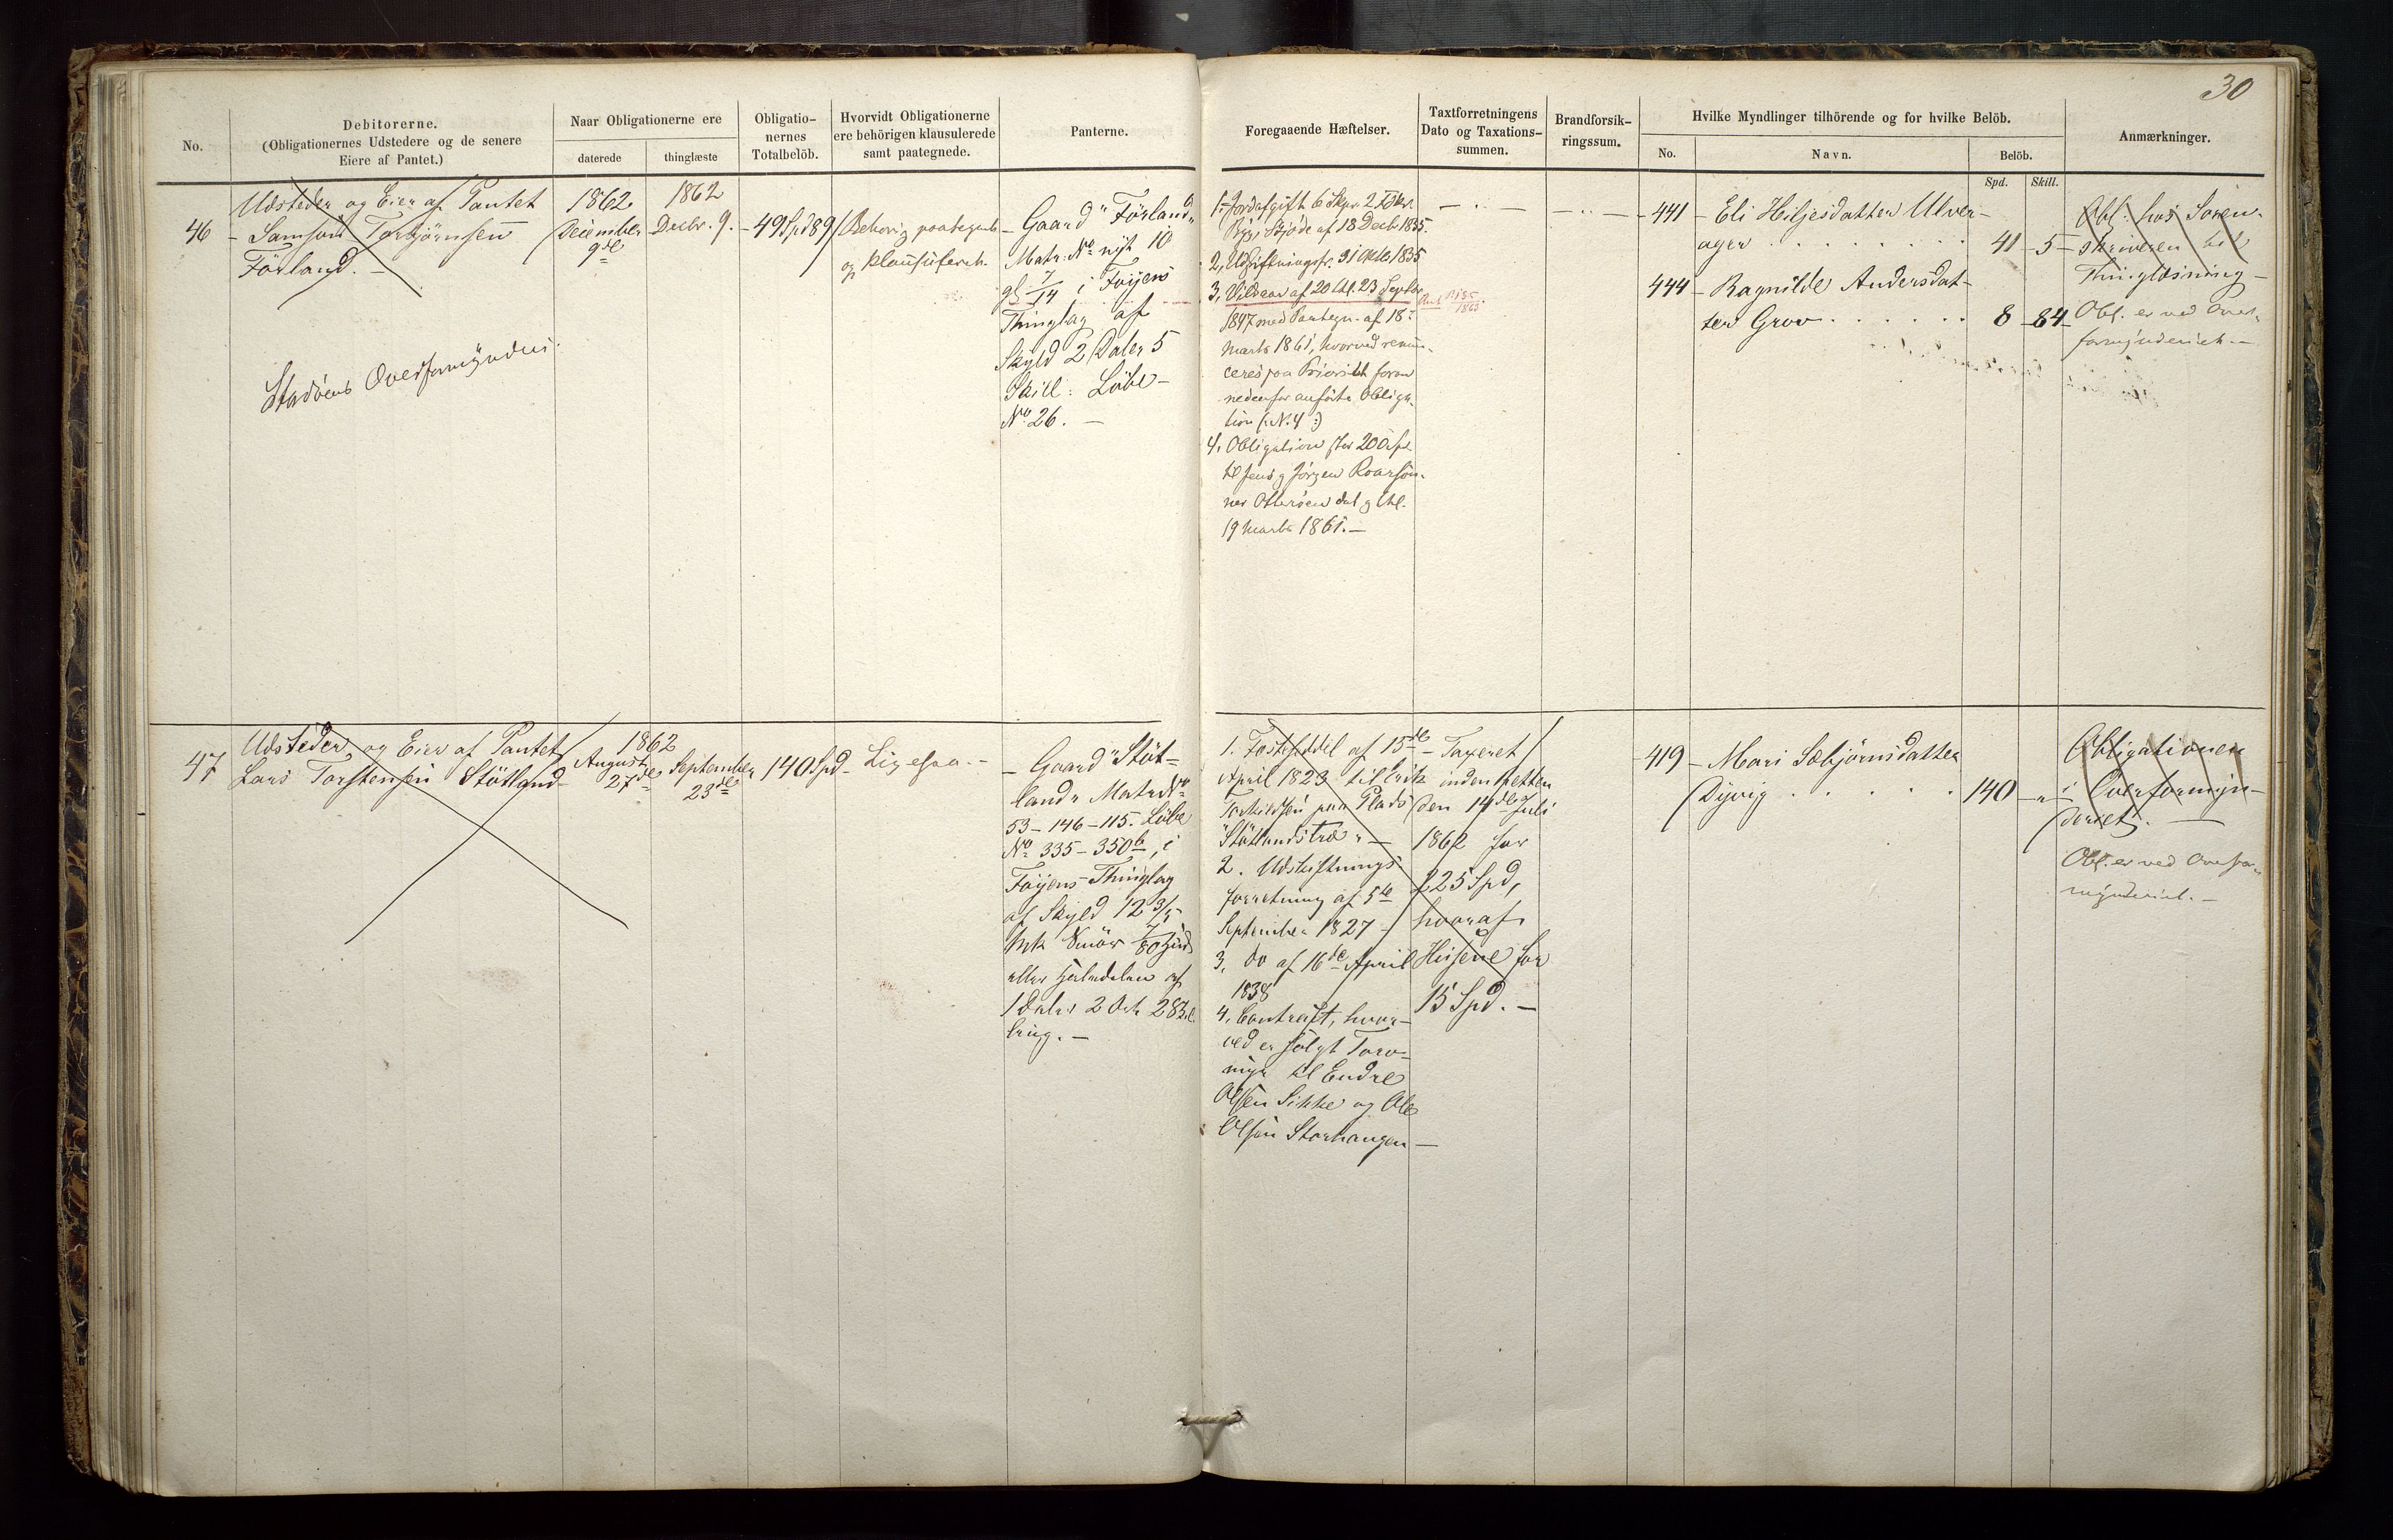 30
No.
Debitorerne.
(Obligationernes Udstedere og de senere
Eiere af Pantet.)
Naar Obligationerne ere
daterede
thinglæste
Obligatio-
nernes
Totalbelöb.
Hvorvidt Obligationerne
ere behörigen klausulerede
samt paategnede.
Panterne.
Foregaaende Hæftelser.
Taxtforretningens
Dato og Taxations-
summen.
Brandforsik-
ringssum.
Hvilke Myndlinger tilhörende og for hvilke Belöb.
No.
Navn.
Belöb.
Spd.
Skill.
Anmærkninger.
46
Udsteder og Eier af Pantet
Samson Torbjörnsen
Förland.
Stadens Overformynderi.
1862
December
9de
1862
Decbr. 9.
49 Spd 89
Behörig paategnet
og klausuleret.
Gaard "Förland"
Matr. No nyt 10
gl 7/14 i Föyens
Thinglag af
Skyld 2 Daler 5
Skill: Löbe
No 26.
1. Jordafgift 6
af 18 Decb 1835.
2, Udskiftningsfr. 31 Oktb 1835
3, Vilkaar af 20 thl. 23 Septbr
1847 med Paategn. af 18
Marts 1861, hvorved renun-
ceres paa Prioritet foran
nedenfor anförte Obliga-
tion (:N. 4:)
4. Obligation stor 200 Spd
til Jens og Jörgen Roarsön-
ner Otteröen dat og thl.
19 Marts 1861.
441
Eli Hiljesdatter Ulver-
ager
41 5
444
Ragnilde Andersdat-
ter Grov
8 84
Obl: hos Soren-
skriveren til
Thinglæsning
Obl. er ved Over-
formynderiet.
47
Udsteder og Eier af Pantet
Lars Torstensen Stötland
1862
August
27de
September
23de
140 Spd
Ligesaa.
Gaard "Stöt-
land" Matr No
53-146-115. Löbe
No 335-350b, i
Föyens Thinglag
af Skyld 12 3/5
Mk Smör
eller halvdelen af
1 Daler 2 Ort 28
brug.
1. Festeseddel af 15de
April 1823 til Erik
Torkildsen paa Plads
"Stötlandstræ"
2. Udskiftnings-
forretning af 5te
September 1827
3, do af 16de April
1838
4, Contract, hvor-
ved er solgt Torv-
myr til Endre
Olsen Sikke og Ole
Olsen Storhaugen
Taxeret
inden Retten
den 14de Juli
1862 for
225 Spd,
hvoraf
Husene for
15 Spd.
419
Mari Sæbjörnsdatter
Dyvig
140
Obligationen
i Overformyn-
deriet.
Obl. er ved Overfor-
mynderiet.